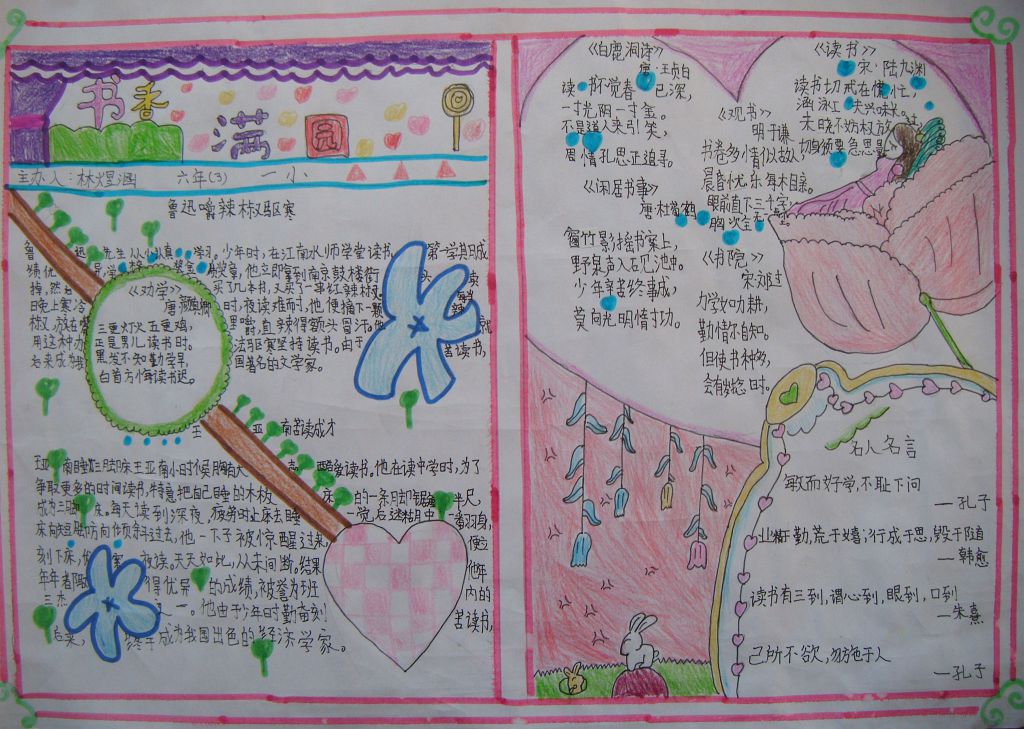 书香满园
主办人:林煜涵 六年(3) 一小
鲁迅嚼辣椒驱寒
鲁迅先生从小认真学习。少年时,在江南水师学堂读书,第一学期成
绩优
他立即拿到南京鼓楼街
掉,然后买了几本书,又买了一串红辣椒
晚上寒冷时,夜读难耐时,他便摘下一颗辣
椒,放在嘴里嚼,直辣得额头冒汗。他就
用这种办法驱寒坚持读书。由于苦读书,
后来成为我国著名的文学家。
《劝学》
唐·颜真卿
三更灯火五更鸡,
正是男儿读书时。
黑发不知勤学早,
白首方悔读书迟。
王亚南苦读成才
王亚南睡三脚床王亚南小时候胸 读书。他在读中学时,为了
争取更多的时间读书,特意把自己睡的木板床的一条脚锯 半尺,
成为三脚床。每天读到深夜,疲劳时上床去睡一觉后迷糊中一翻身,
床向短脚方向倾斜过去,他一下子被惊醒过来,便立
刻下床, 夜读。天天如此,从未间断。结果他年
年年都 得优异的成绩,被誉为班内的
三杰 一。他由于少年时勤奋刻苦读书,
后来,终于成为我国出色的经济学家。
《白鹿洞诗》
唐·王贞白
读书不觉春已深,
一寸光阴一寸金。
不是道人来引笑,
周情孔思正追寻。
《闲居书事》
唐·杜荀鹤
窗竹影摇书案上,
野泉声入砚池中。
少年辛苦终事成,
莫向光明惰寸功。
《读书》
宋·陆九渊
读书切戒在慌忙,
涵泳工夫兴味长。
未晓不妨权放过
切身须要急思量
《观书》
明于谦
书卷多情似故人,
晨昏忧乐每相亲。
眼前直下三千字,
胸次全无一
《书院》
宋刘过
力学如力耕,
勤惰尔自知。
但使书种多,
会有岁稔时。
名人名言
敏而好学,不耻下问
—孔子
业精于勤,荒于嬉;行成于思,毁于随
—韩愈
读书有三到,谓心到,眼到,口到
—朱熹
己所不欲,勿施于人
—孔子